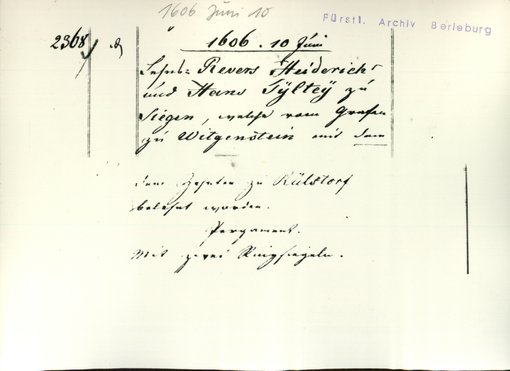 1606 Juni 10
Fürstl. Archiv Berleburg
2368
1606. 10 Juni
Lehns-Revers Heiderichs
und Hans Tÿlteÿ zu
Siegen, welche vom Grafen
zu Witgenstein mit dem
dem Zehnten zu Rülstorf
belehnt worden.
Pergament.
Mit zwei Ringsiegeln.